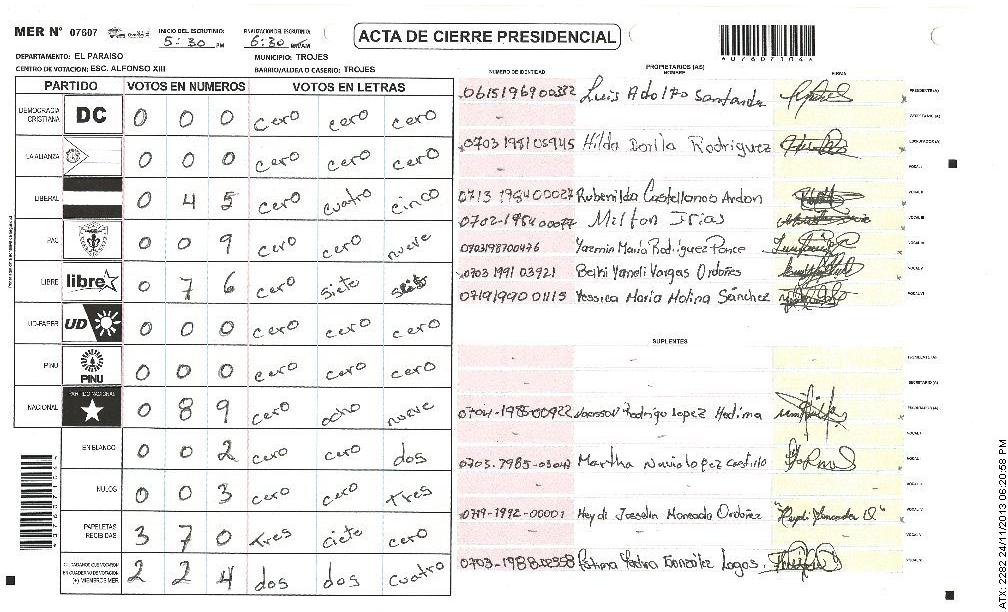 MER N° 07607
INICIO DEL ESCRUTINIO: 5:30 PM
FINALIZACION DEL ESCRUTINIO: 6:30 PM/AM
ACTA DE CIERRE PRESIDENCIAL
DEPARTAMENTO: EL PARAISO
MUNICIPIO: TROJES
CENTRO DE VOTACION: ESC. ALFONSO XIII
BARRIO/ALDEA O CASERIO: TROJES
PARTIDO VOTOS EN NUMEROS VOTOS EN LETRAS
DEMOCRACIA CRISTIANA DC 0 0 0 cero cero cero
LA ALIANZA 0 0 0 cero cero cero
LIBERAL 0 4 5 cero cuatro cinco
PAC 0 0 9 cero cero nueve
LIBRE libre 0 7 6 cero siete
UD-FAPER UD 0 0 0 cero cero cero
PINU PINU 0 0 0 cero cero cero
NACIONAL PARTIDO NACIONAL 0 8 9 cero ocho nueve
EN BLANCO 0 0 2 cero cero dos
NULOS 0 0 3 cero cero Tres
PAPELETAS RECIBIDAS 3 7 0 Tres ciete cero
2 2 4 dos dos cuatro
NUMERO DE IDENTIDAD PROPIETARIOS (AS) NOMBRE FIRMA
Luis Adolfo Santanda PRESIDENTE(A)
0703 1981 05945 Hilda Dorila Rodriguez
0713 1984 00027 Rubenilda Castellanos Ardon
0702-1984 00077 Milton Irias
0703198700476 Yazmin Maria Rodriguez Ponce
0703 1991 03921 Belki Yaneli Vargas Ordoñes
0719 1990 01115 Yessica Maria Molina Sánchez
SUPLENTES
0704-1985-00922 Rodrigo Lopez Medina
Martha Lopez Castillo
0719-1992-00001 Heydi Josselin Moncada Ordoñez
0703-1988-02558 Fatima Yadira González Lagos
ATX: 2282 24/11/2013 06:20:58 PM